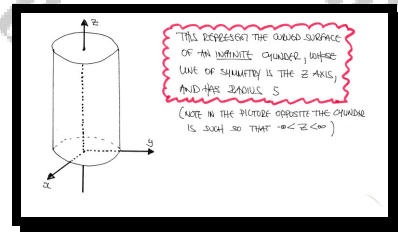 z
THIS REPRESENT THE CURVED SURFACE
OF AN INFINITE CYLINDER, WHOSE
LINE OF SYMMETRY IS THE Z AXIS,
AND HAS RADIUS 5
(NOTE IN THE PICTURE OPPOSITE THE CYLINDER
IS SUCH SO THAT -∞ < Z < ∞)
y
x